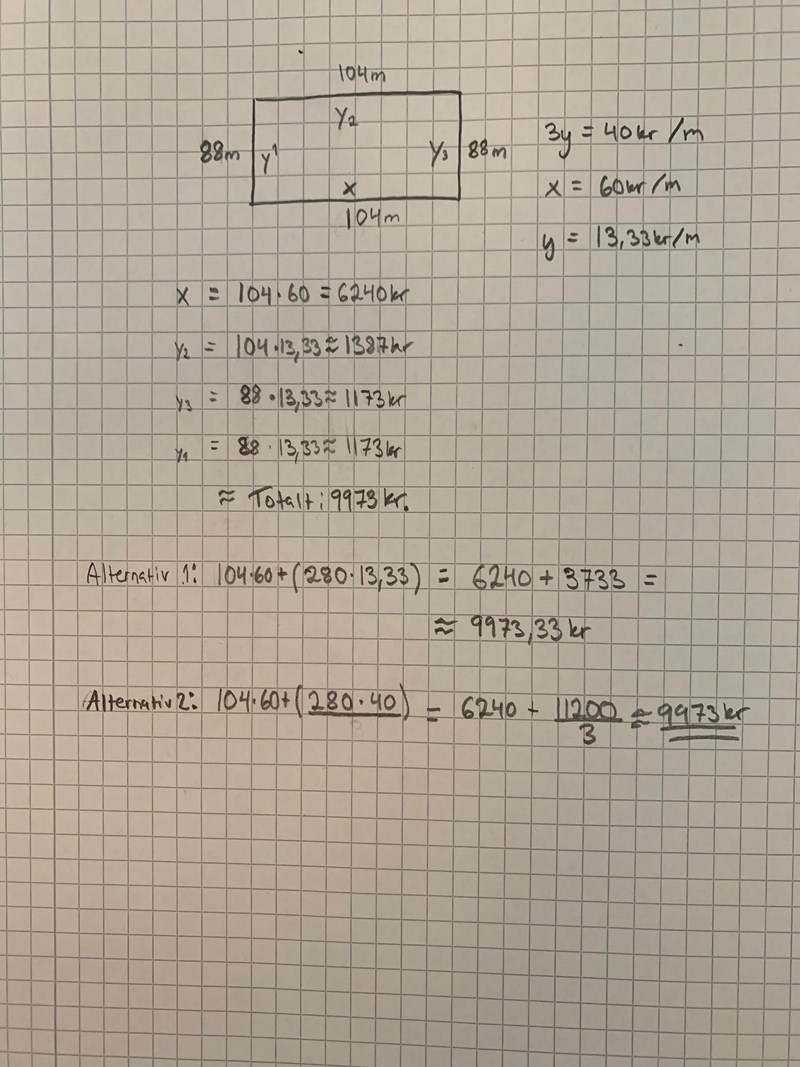 104m
Y₂
88m Y¹ Y₃ 88m
x
104m
3y = 40kr/m
x = 60kr/m
y = 13,33kr/m
x = 104·60 = 6240kr
Y₂ = 104·13,33 ≈ 1387kr
Y₃ = 88·13,33 ≈ 1173kr
Y₁ = 88·13,33 ≈ 1173kr
≈ Totalt: 9973kr.
Alternativ 1: 104·60+(280·13,33) = 6240 + 3733 =
≈ 9973,33 kr
Alternativ 2: 104·60+(280·40) = 6240 + 11200 ≈ 9973kr
3